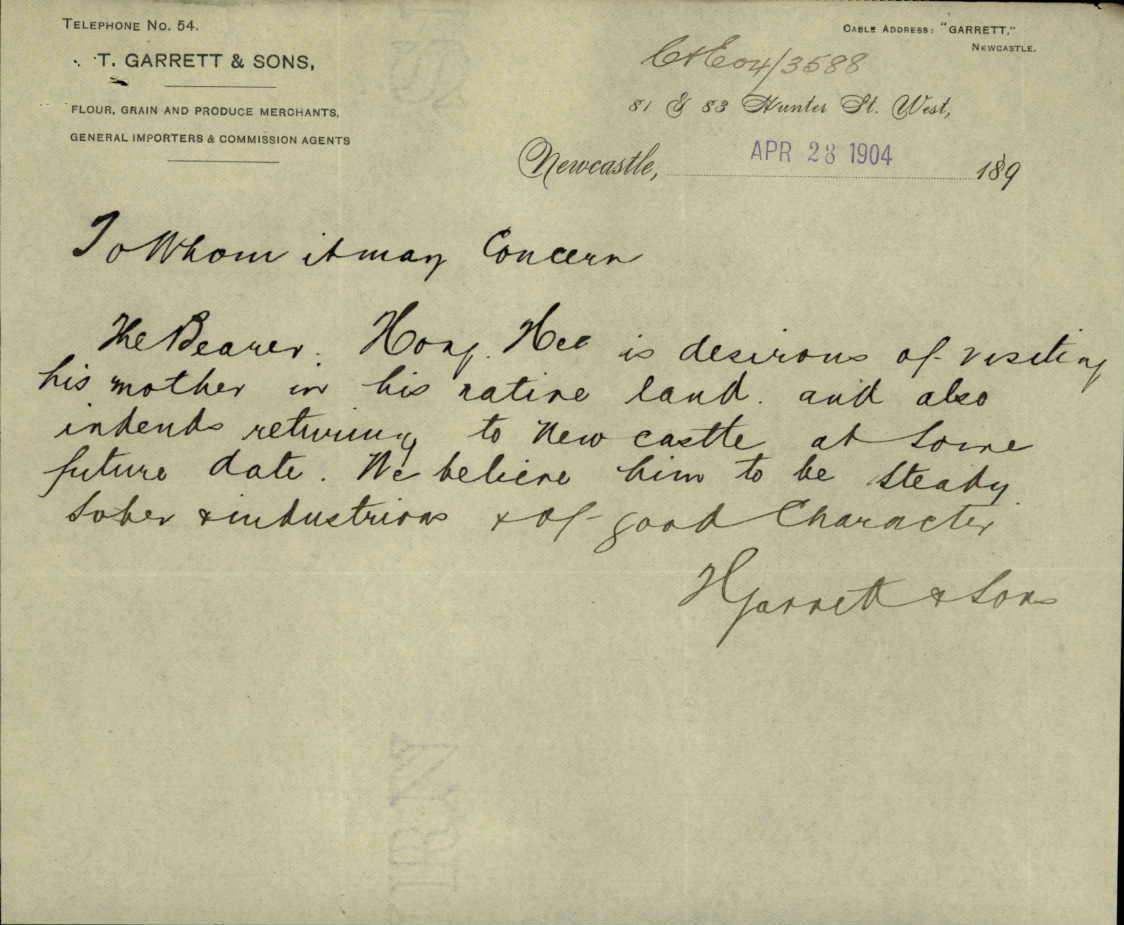 TELEPHONE NO. 54.
CABLE ADDRESS: "GARRETT,"
NEWCASTLE.
T. GARRETT & SONS,
C & E 04/3588
FLOUR, GRAIN AND PRODUCE MERCHANTS,
GENERAL IMPORTERS & COMMISSION AGENTS
81 & 83 Hunter St. West,
Newcastle, APR 28 1904 189
To Whom it may Concern
The Bearer. Hong. Hee is desirous of visiting
his mother in his native land. and also
intends returning to New castle at some
future date. We believe him to be steady.
Sober & industrious & of good Character
T Garrett & Sons